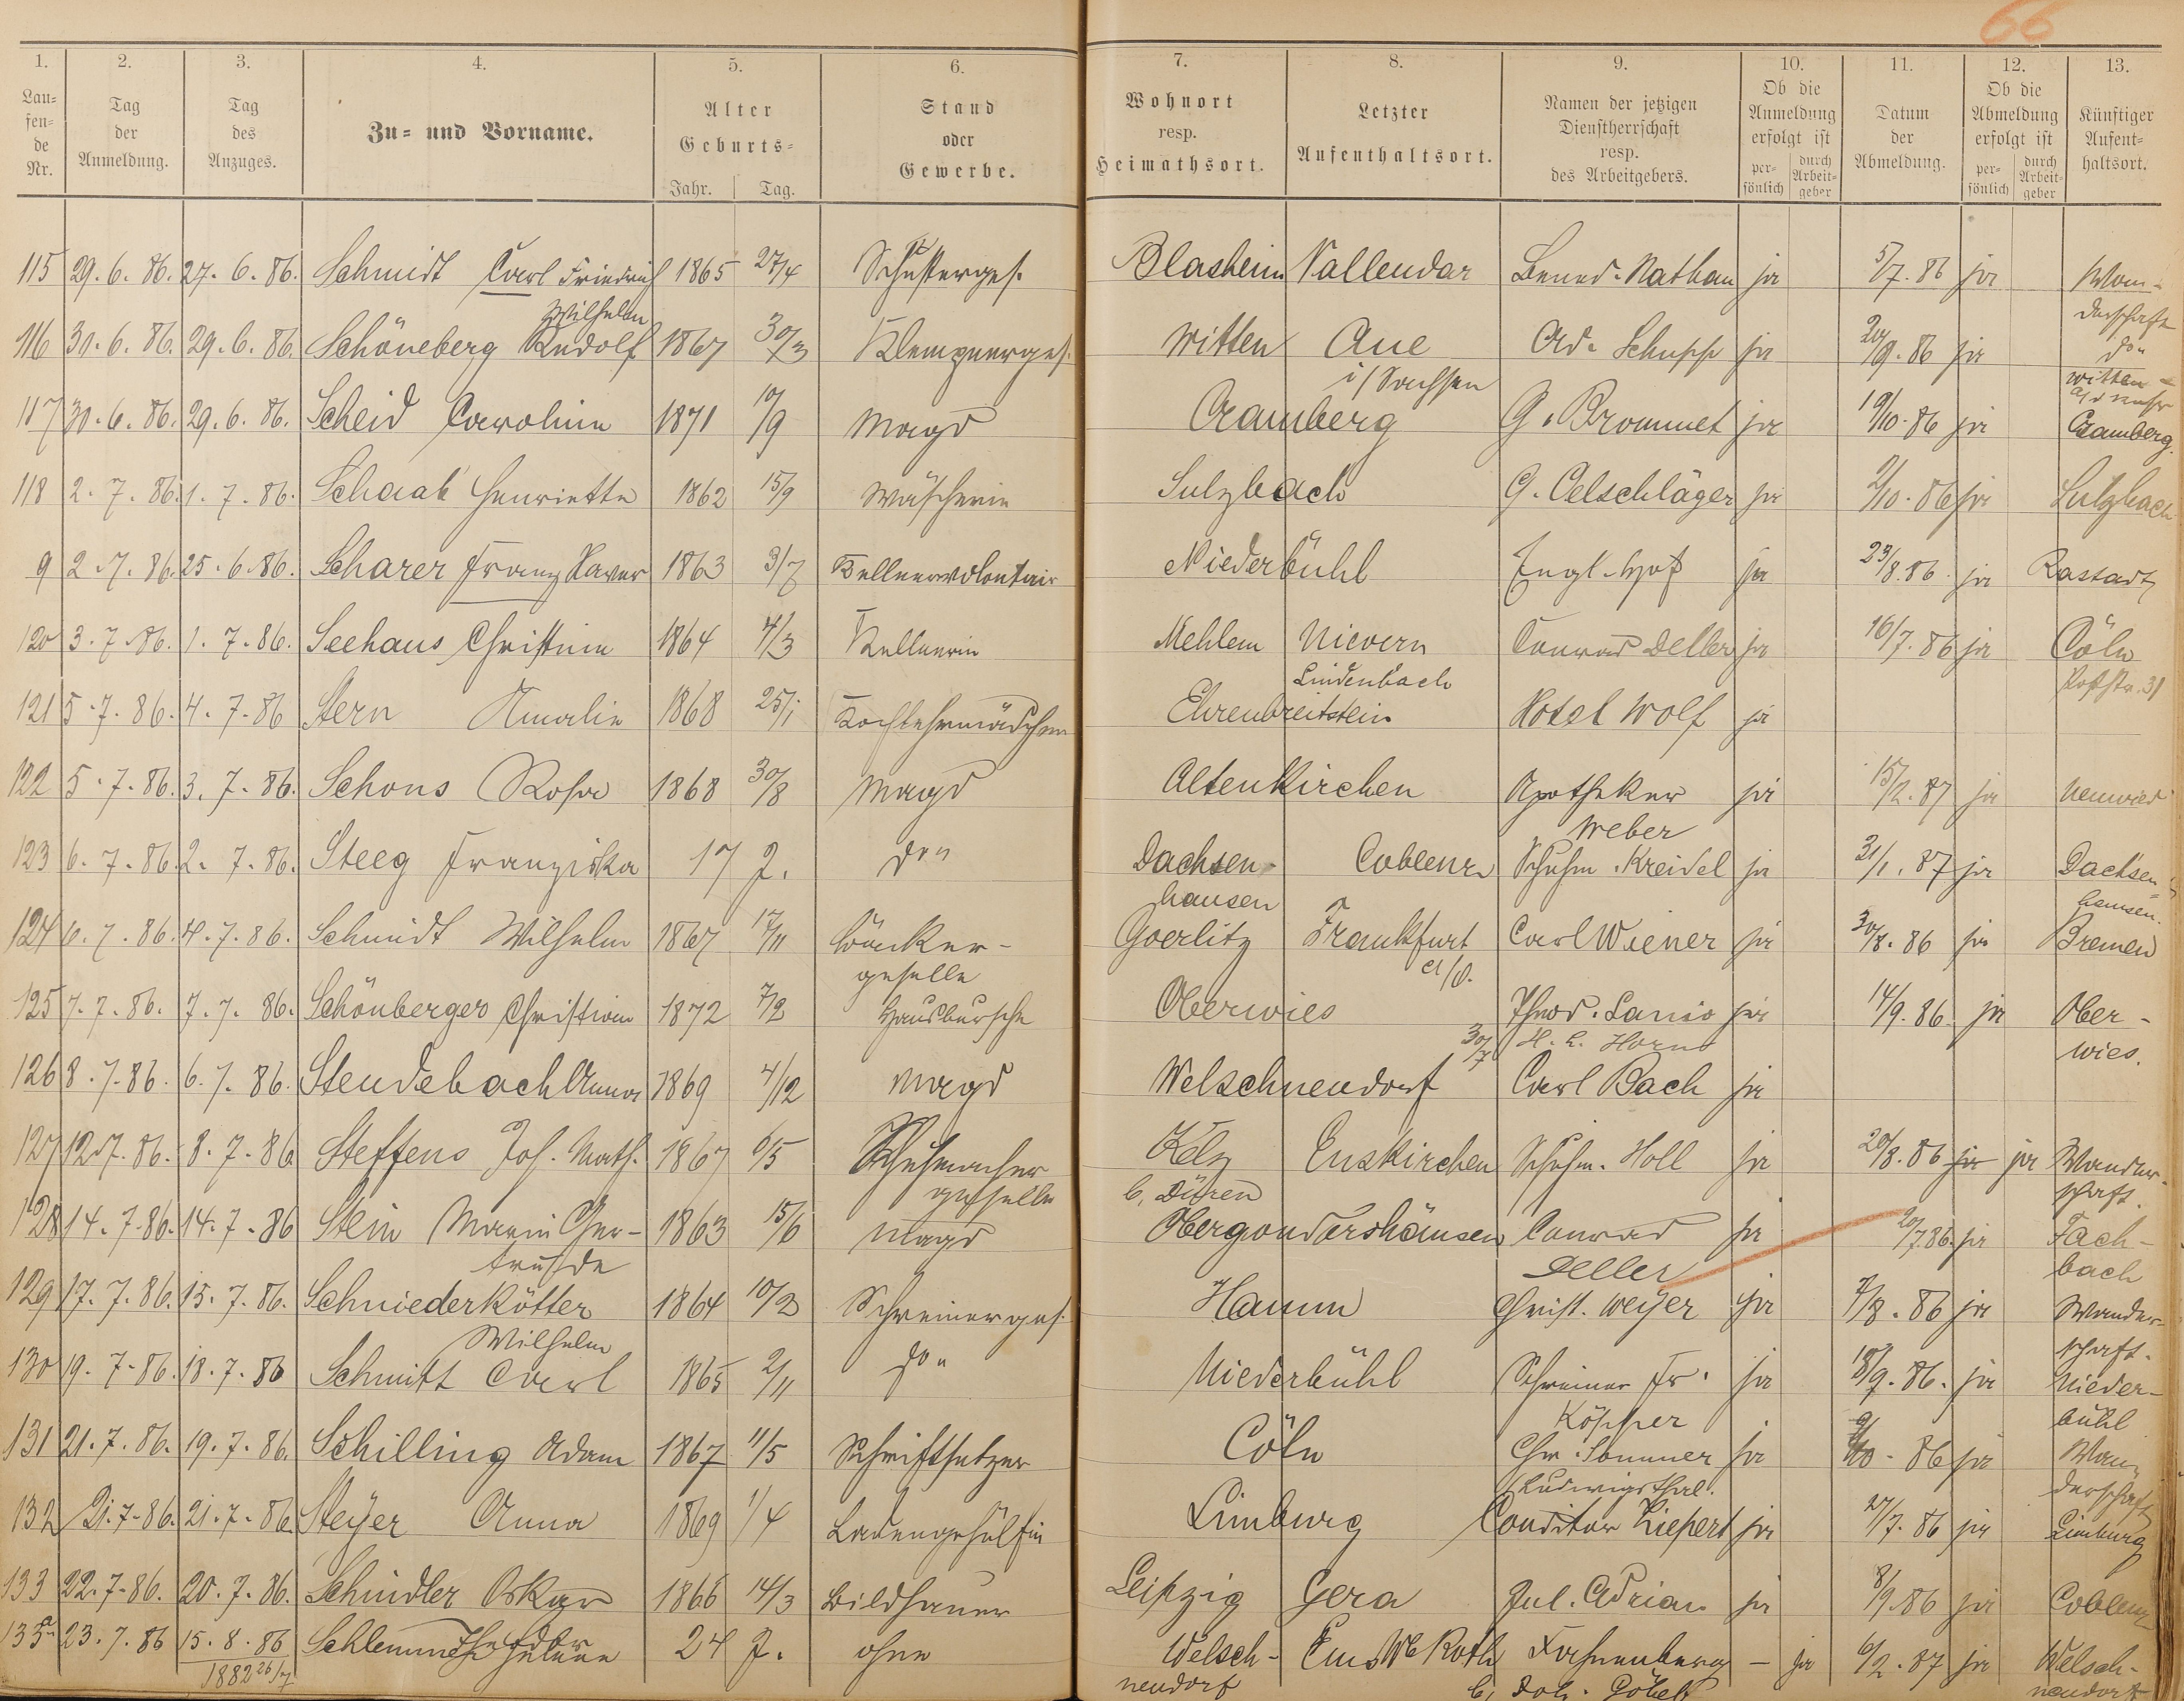 66
1. 2. 3. 4. 5. 6. 7. 8. 9. 10. 11. 12. 13.
Lau=
fen=
de
Nr.
Tag
der
Anmeldung.
Tag
des
Anzuges.
Zu= und Vorname.
Alter
Geburts=
Jahr. Tag.
Stand
oder
Gewerbe.
Wohnort
resp.
Heimathsort.
Letzter
Aufenthaltsort.
Namen der jetzigen
Dienstherrschaft
resp.
des Arbeitgebers.
Ob die
Anmeldung
erfolgt ist
per=
sönlich
durch
Arbeit=
geber
Datum
der
Abmeldung.
Ob die
Abmeldung
erfolgt ist
per=
sönlich
durch
Arbeit=
geber
Künftiger
Aufent=
haltsort.
115 29.6.86. 27.6.86. Schmidt Carl Friedrich 1865 27/4 Schusterges. Blasheim Vallendar Bened. Nathan ja 5/7.86 ja Wan-
Wilhelm derschaft
116 30.6.86. 29.6.86. Schöneberg Rudolf 1867 30/3 Klempnerges. Witten Aue Ad. Schupp ja 20/9.86 ja do
i/Sachsen Witten
117 30.6.86. 29.6.86. Scheid Carolina 1871 Magd Cramberg G. Brommet ja 19/10.86 ja Cramberg
118 2.7.86. 1.7.86. Schaab Henriette 1862 15/9 Wäscherin Sulzbach G. Oelschläger ja 2/10.86 ja Sulzbach
9 2.7.86. 25.6.86. Scharer Franz Xaver 1863 3/7 Kellnervolontair Niederbühl Engl. Hof ja 23/8.86. ja Rastadt
120 3.7.86. 1.7.86. Seehaus Christina 1864 4/3 Kellnerin Mehlem Nievern Conrad Deller ja 16/7.86 ja Cöln
Lindenbach Poststr. 31
121 5.7.86. 4.7.86 Stern Amalie 1868 25/1 Kochlehrmädchen Ehrenbreitstein Hotel Wolf ja
122 5.7.86. 3.7.86. Schons Rosa 1868 30/8 Magd Altenkirchen Apotheker ja 15/2.87 ja Neuwied
Weber
123 6.7.86. 2.7.86. Steeg Franziska 17 J. do Dachsen- Coblenz Schuhm. Kreidel ja 31/1.87 ja Dachsen-
hausen hausen.
124 6.7.86. 4.7.86. Schmidt Wilhelm 1867 17/11 Bäcker- Goerlitz Frankfurt Carl Wiener ja 30/8.86 ja Bremen
geselle a/O.
125 7.7.86. 7.7.86. Schönberger Christian 1872 7/2 Hausbursche Oberwies Theod. Lanio ja 14/9.86. ja Ober-
30/7 H. L. Horns wies.
126 8.7.86. 6.7.86. Steudebach Anna 1869 4/12 Magd Welschneudorf Carl Bach ja
127 12.7.86. 8.7.86 Steffens Jos. Math. 1867 6/5 Schuhmacher Kelz Euskirchen Schuhm. Holl ja 20/8.86 ja ja Wander-
geselle b. Düren schaft.
128 14.7.86. 14.7.86 Stein Maria Ger- 1863 15/6 Magd Obergondershausen Conrad ja 20/7.86. ja Fach-
trude Deller bach
129 17.7.86. 15.7.86. Schniederkötter 1864 10/2 Schreinerges. Hamm Christ. Weyer ja 7/8.86 ja Wander-
Wilhelm schaft.
130 19.7.86. 18.7.86 Schmitt Carl 1865 2/11 do Niederbühl Schreiner Fr. ja 18/9.86. ja Nieder-
Köpper bühl
131 21.7.86. 19.7.86. Schilling Adam 1867 11/5 Schriftsetzer Cöln Chr. Sommer ja 86 ja Wan-
Ludwigsthal. derschaft
132 21.7.86. 21.7.86. Steyer Anna 1869 1/4 Ladengehülfin Limburg Conditor Kiepert ja 27/7.86 ja Limburg
133 22.7.86. 20.7.86. Schindler Oskar 1866 14/3 Bildhauer Leipzig Gera Jul. Adrian ja 8/9.86 ja Coblenz
23.7.86 15.8.86 Helene 24 J. ohne Welsch- Ems Roth Fachnenberg - ja 6/2.87 ja Welsch-
1882 26/7 neudorf b. neudorf